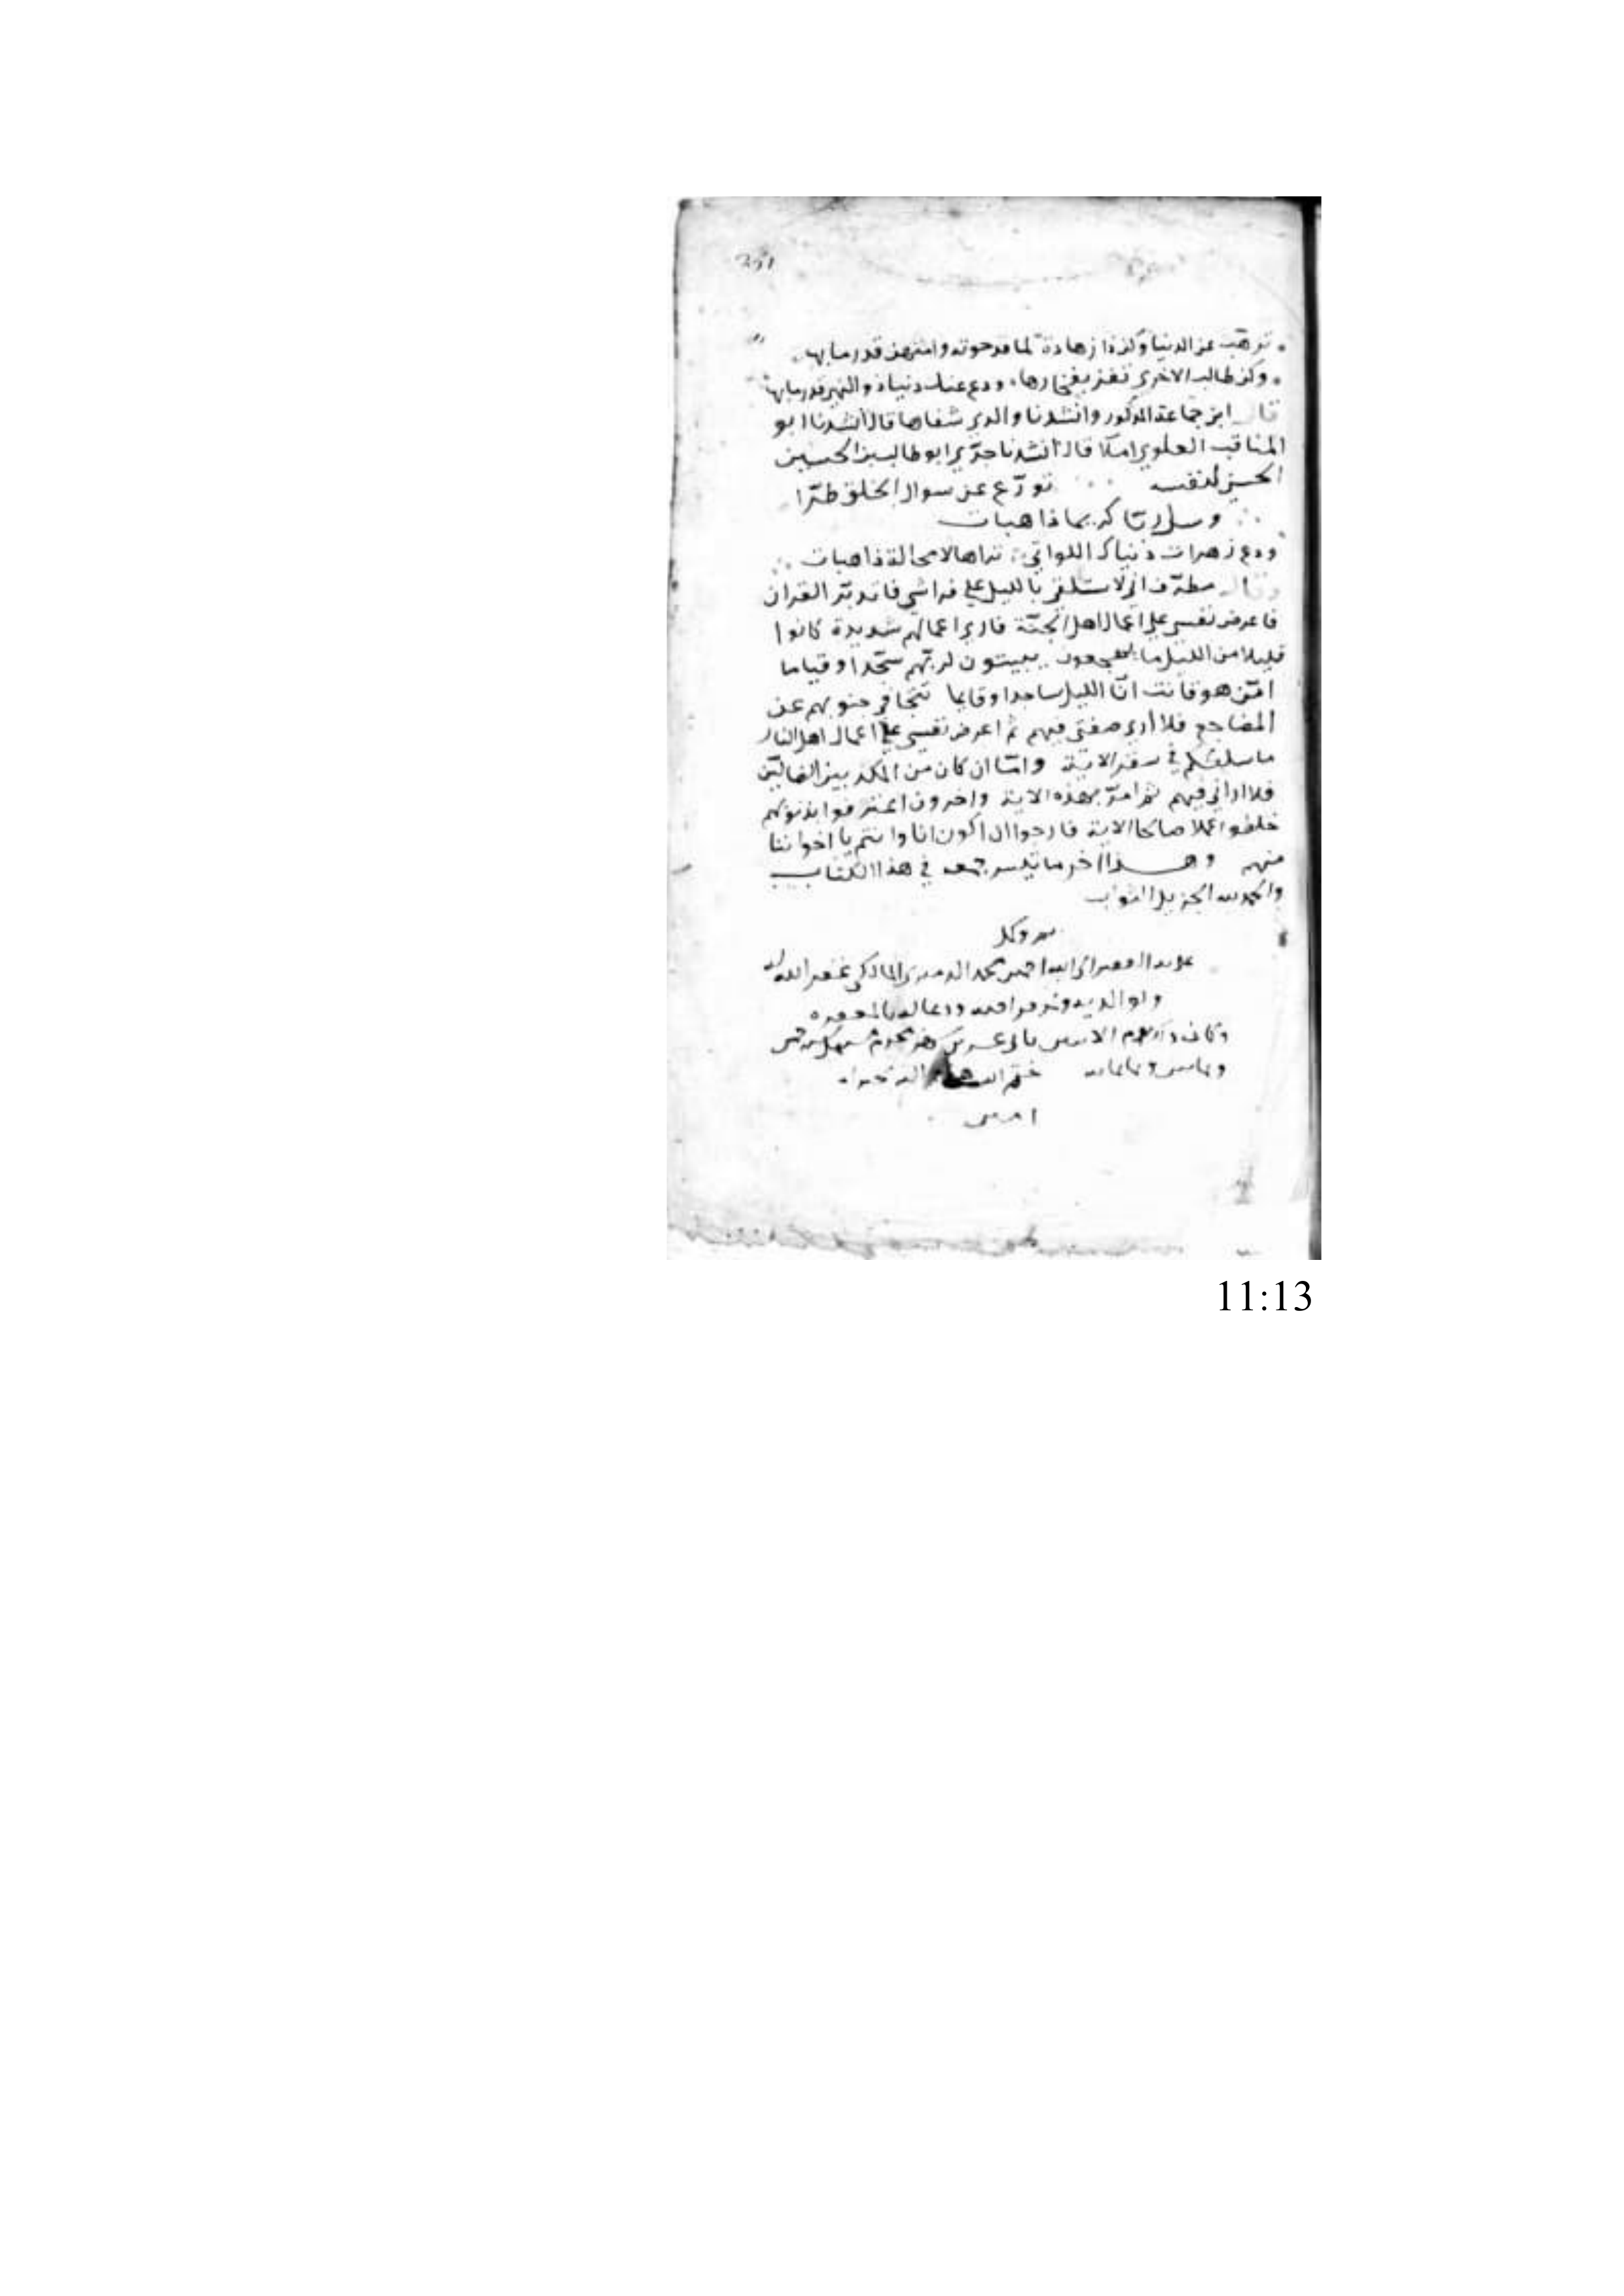 ترهب عن الدنيا وكن ذا زهادة لما قد حوته وانتهز قدر ما بها
وكن طالب الاخري تفز بفخارها ودع عنك دنياك والنهر قدر ما بها
قال ابن جماعة المذكور وانشدنا والدي شفاها قال انشدنا ابو
المناقب العلوي املا قال انشدنا جدّي ابو طالب بن الحسين
الحسين لنفسه تورّع عن سوال الخلق طرّا
وسل ربّا كريما ذا هبات
ودع زهرات دنياك اللواتي تراها لا محالة ذاهبات
وقال مطرّف اني لاستلقي بالليل علي فراشي فاتدبّر القران
فاعرض نفسي علي اعمال اهل الجنّة فاري اعمالهم شديدة كانوا
قليلا من الليل ما يهجعون يبيتون لربّهم سجّدا وقياما
امّن هو قانت انا الليل ساجدا وقايما تتجافي جنوبهم عن
المضاجع فلا اري صفتي فيهم ثم اعرض نفسي علي اعمال اهل النار
ما سلككم في سقر الاية وامّا ان كان من المكذبين الضالّين
فلا اراني فيهم ثم امرّ بهذه الاية واخرون اعترفوا بذنوبهم
خلطوا عملا صالحا الاية فارجوا ان اكون انا وانتم يا اخواننا
منهم وهذا اخر ما تيسر جمعه في هذا الكتاب
والحمد لله الجزيل الثواب
تم وكمل
علي يد الفقير الي الله احمد بن محمد المالكي غفر الله له
ولوالديه ولمن قرا فيه ودعا له بالمغفرة
وكان ذلك يوم الاثنين عشرين محرم سنة
وثمانين وثمانمائه ختم الله بخير
امين
11:13